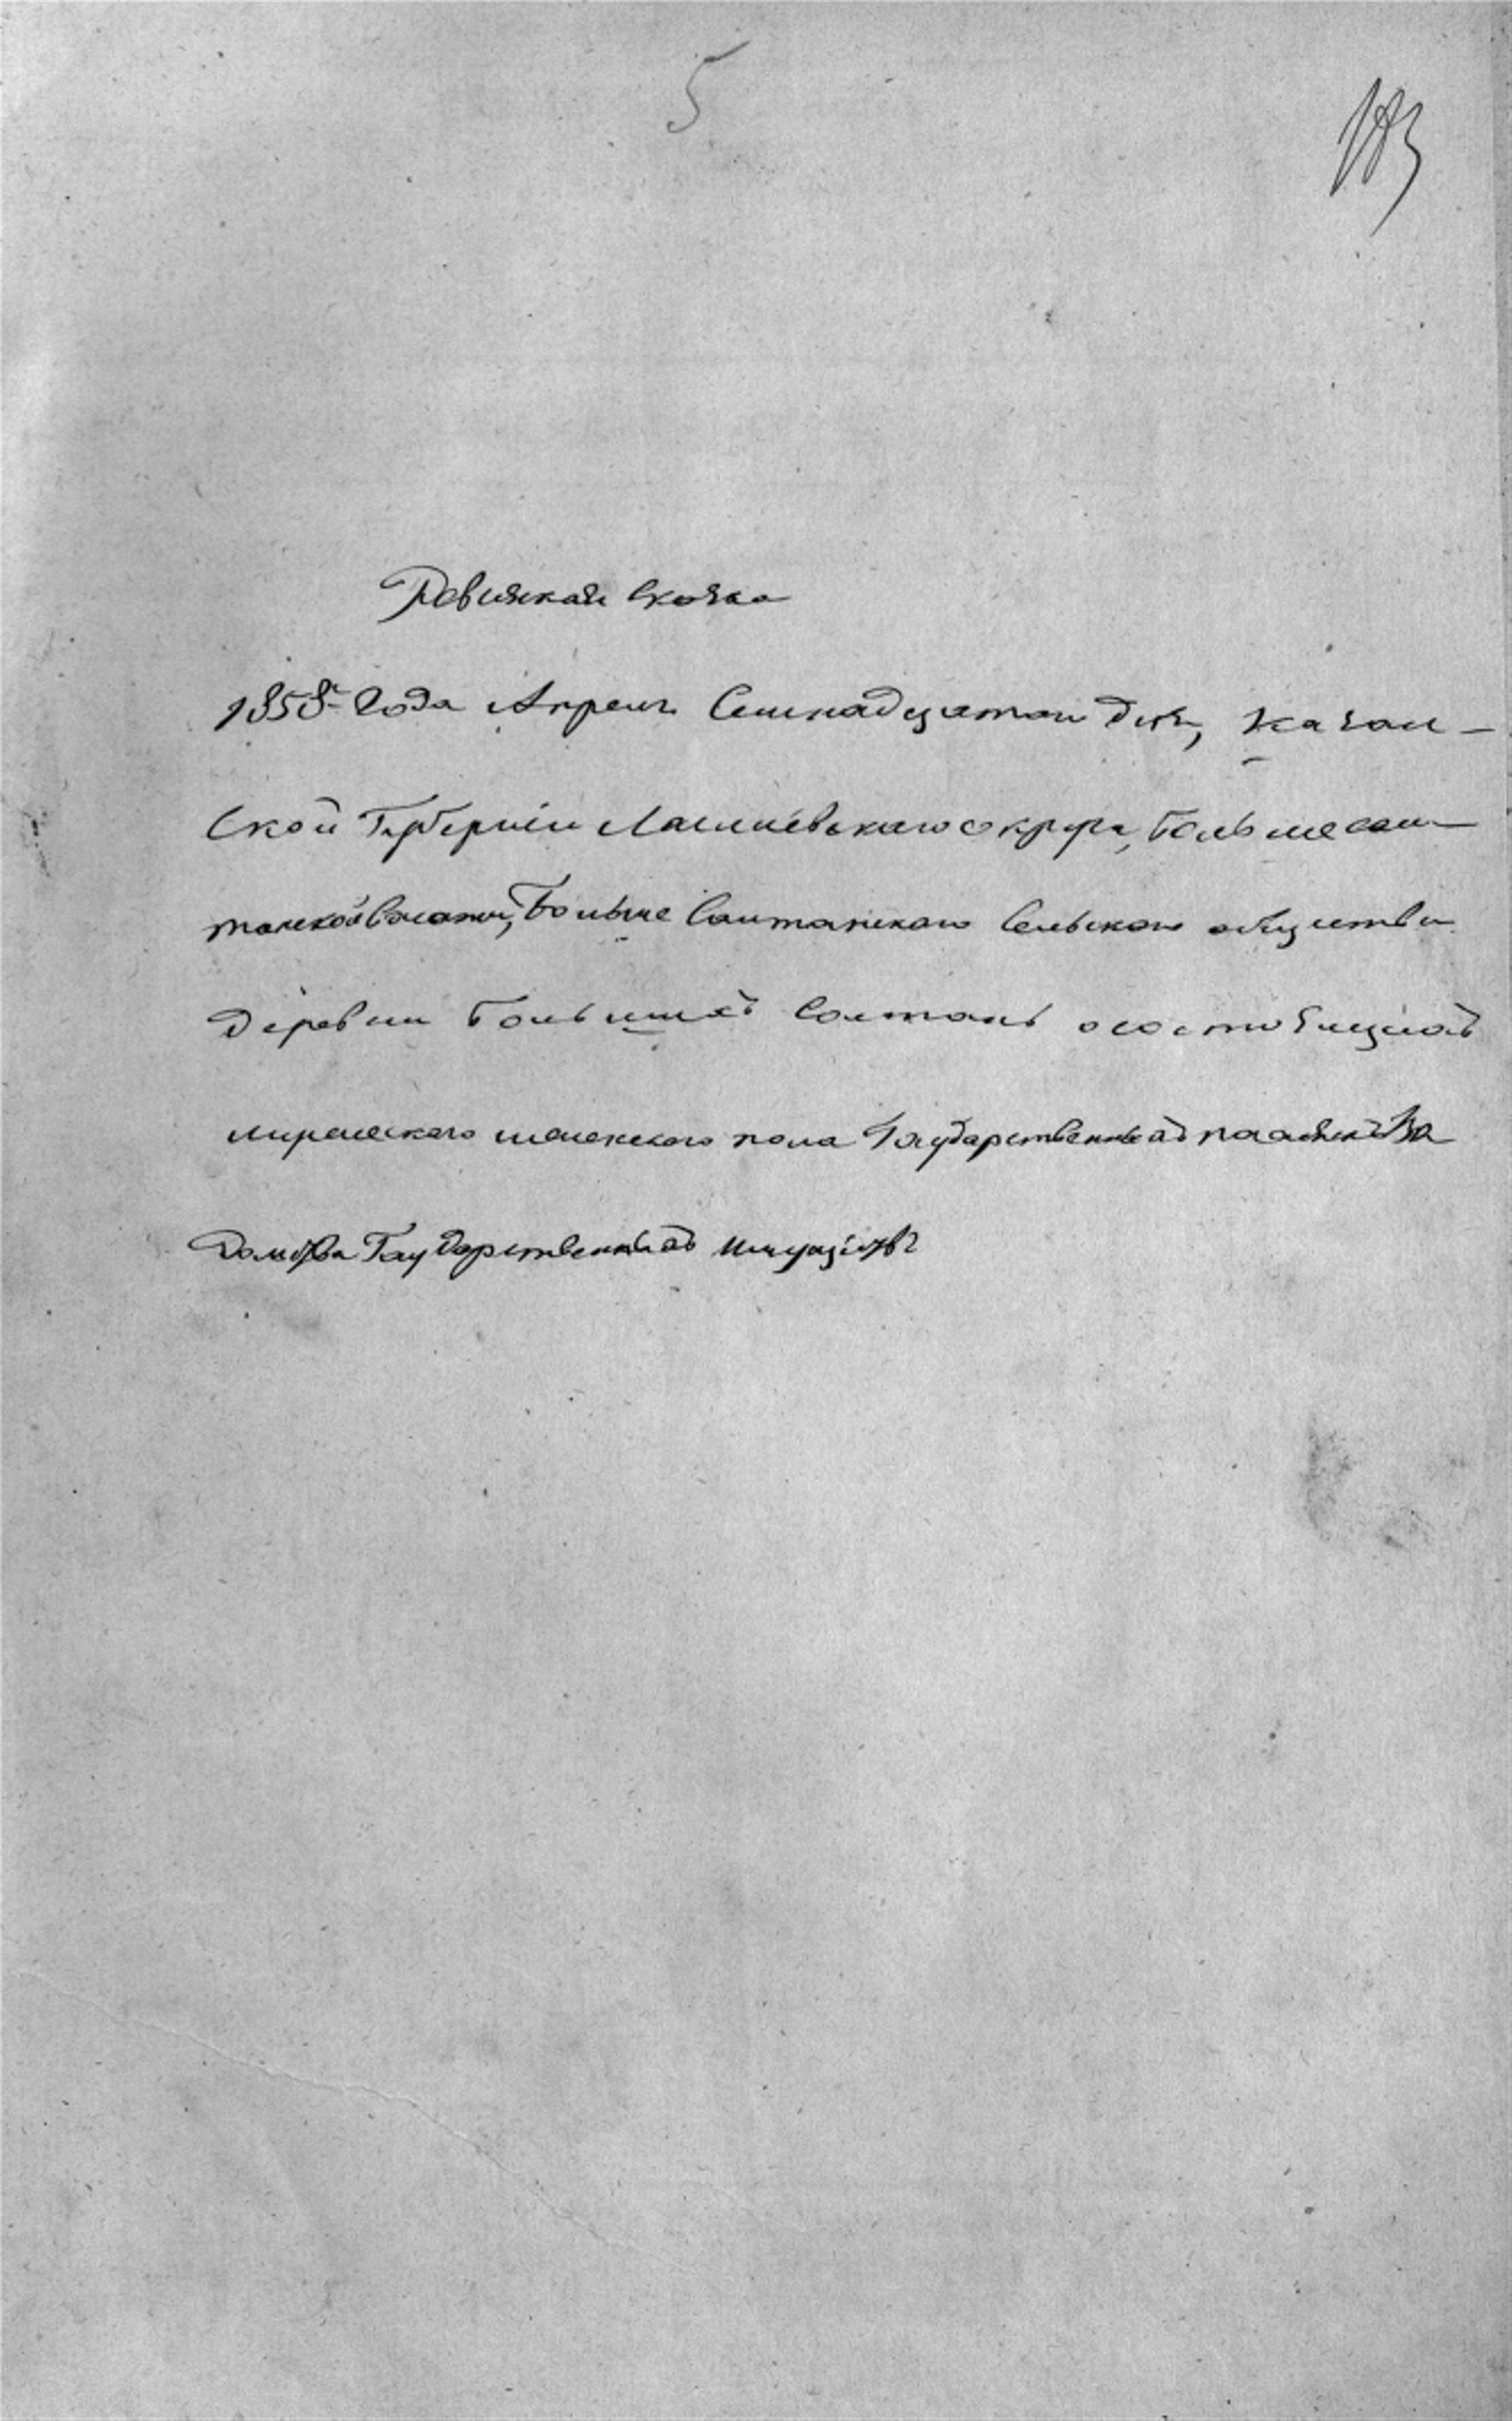 5
183
Ревизкая Сказка
1858 года Апреля Семнадцатои день, Казан-
ской Губернии Лаишевскаго округа, Больше сал-
танской Волости, Больше Салтанскаго Сельскаго общества
деревни Большихъ Салтанъ о состоящихъ
мужескаго женскаго пола Государственныхъ
Государственныхъ имуществъ